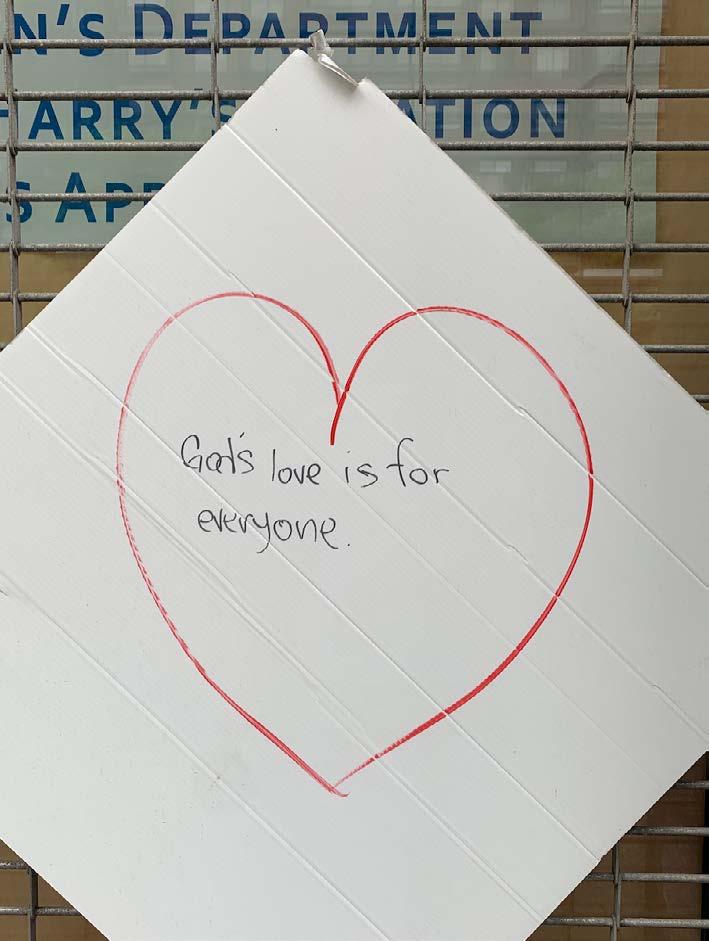 N'S DEPARTMENT
ARRY'S ATION
S AP
God's love is for
everyone.